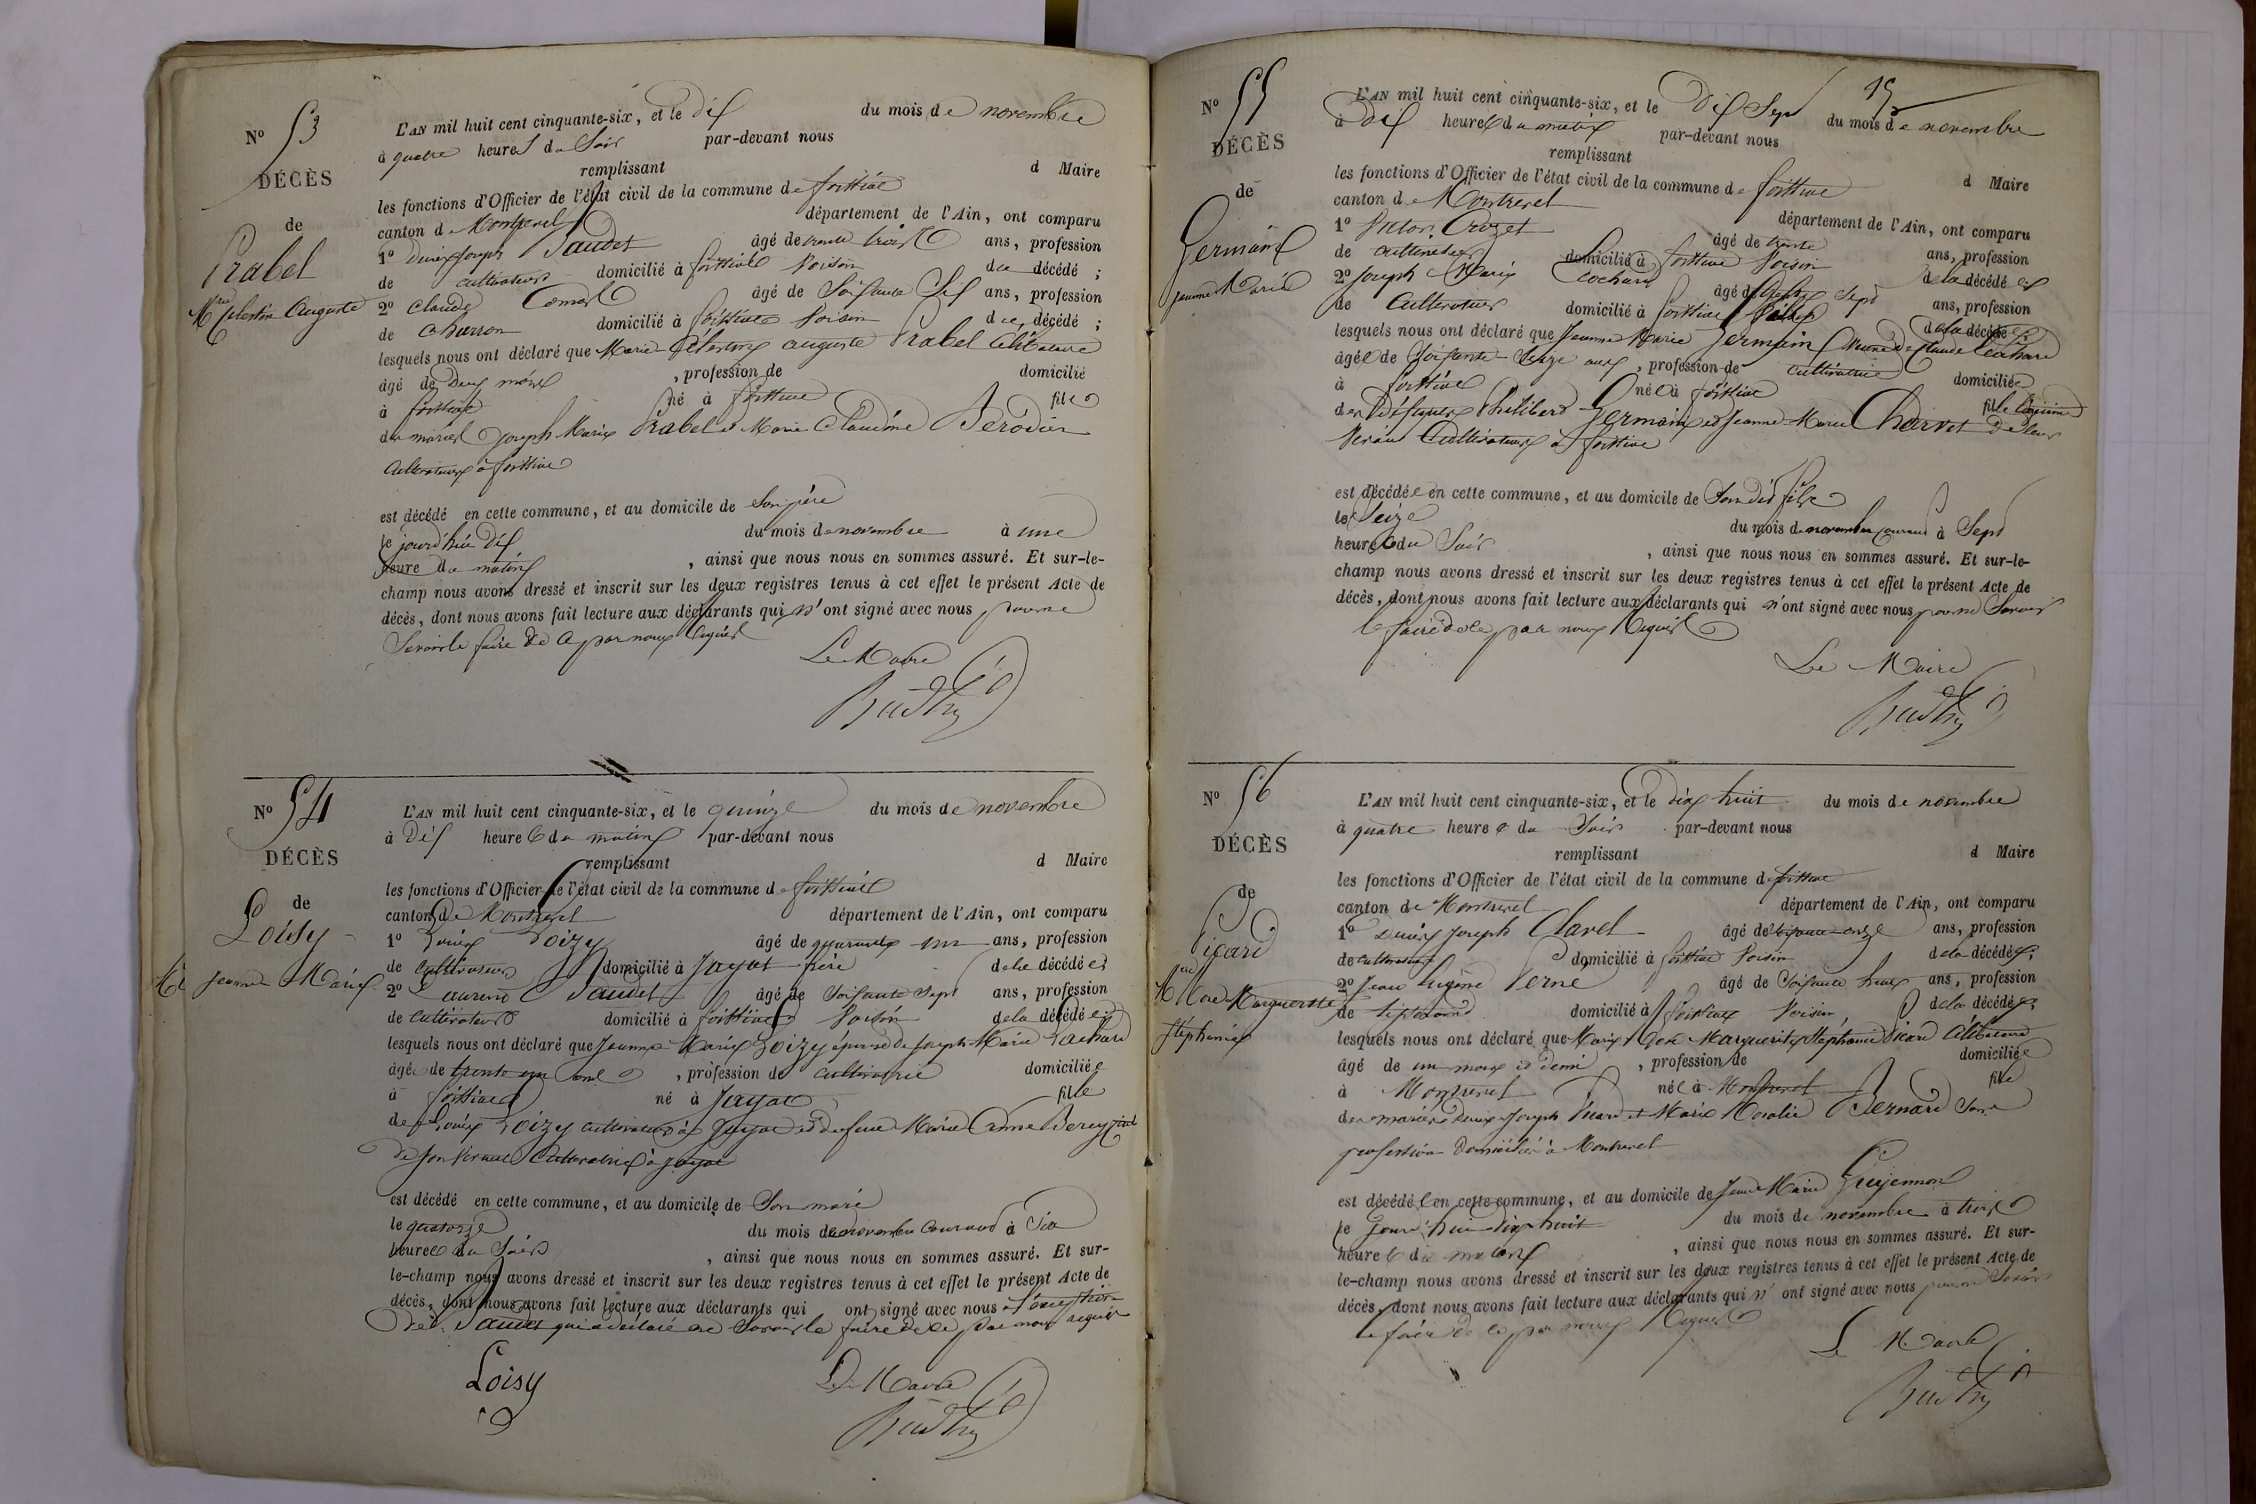 N° 53
DÉCÈS
de
Prabel
Mie Celestin Auguste
L'AN mil huit cent cinquante-six, et le dix du mois de novembre
à quatre heures du Soir par-devant nous
remplissant d Maire
les fonctions d'Officier de l'état civil de la commune de foissiat
canton de Montrevel département de l'Ain, ont comparu
1° Denis Joseph Paudet âgé de trente trois ans, profession
de cultivateur domicilié à foissiat Voisin du décédé ;
2° Claude âgé de Soixante dix ans, profession
de charron domicilié à foissiat Voisin du décédé ;
lesquels nous ont déclaré que Marie Célestin auguste Prabel Célibataire
âgé de deux mois , profession de domicilié
à foissiat né à foissiat fils
des mariés Joseph Marie Prabel et Marie Claudine Berodier
Cultivateurs à foissiat
est décédé en cette commune, et au domicile de Son père
le jourd'hui dix du mois de novembre à une
heure du matin , ainsi que nous nous en sommes assuré. Et sur-le-
champ nous avons dressé et inscrit sur les deux registres tenus à cet effet le présent Acte de
décès, dont nous avons fait lecture aux déclarants qui n'ont signé avec nous pour ne
Savoir le faire de ce par nous requis
Le Maire
N° 54
DÉCÈS
de
Loisy
Jeanne Marie
L'AN mil huit cent cinquante-six, et le quinze du mois de novembre
à Dix heures du matin par-devant nous
remplissant d Maire
les fonctions d'Officier de l'état civil de la commune de foissiat
canton de Montrevel département de l'Ain, ont comparu
1° Louis Loizy âgé de quarante un ans, profession
de cultivateur domicilié à Jayat frère de la décédée
2° Laurent Paudet âgé de Soixante Sept ans, profession
de cultivateur domicilié à foissiat Voisin de la décédée
lesquels nous ont déclaré que Jeanne Marie Loizy épouse de Joseph Marie Cochard
âgée de trente ans , profession de cultivatrice domiciliée
à foissiat né à Jayat fille
de Louis Loizy cultivateur à Jayat et de feue Marie Anne
de Son Vivant Cultivatrice à Jayat
est décédé en cette commune, et au domicile de Son mari
le quatorze du mois de novembre Courant à Six
heures du Soir , ainsi que nous nous en sommes assuré. Et sur-
le-champ nous avons dressé et inscrit sur les deux registres tenus à cet effet le présent Acte de
décès, dont nous avons fait lecture aux déclarants qui ont signé avec nous à l'exception
de Paudet qui a déclaré ne Savoir le faire de ce par nous requis
Loisy
Le Maire
N° 55
DÉCÈS
de
Germain
Jeanne Marie
L'AN mil huit cent cinquante-six, et le Dix Sept du mois de novembre
à Dix heures du matin par-devant nous
remplissant d Maire
les fonctions d'Officier de l'état civil de la commune de foissiat
canton de Montrevel département de l'Ain, ont comparu
1° Victor Crozet âgé de trente ans, profession
de cultivateur domicilié à foissiat Voisin de la décédée
2° Joseph Marie Cochard âgé de trente Sept ans, profession
de Cultivateur domicilié à foissiat fils de la décédée
lesquels nous ont déclaré que Jeanne Marie Germain Veuve de Claude Cochard
âgée de Soixante Seize ans , profession de cultivatrice domiciliée
à foissiat née à foissiat fille
des Défunts Philibert Germain et Jeanne Marie Charvet De leur
Vivant Cultivateurs à foissiat
est décédée en cette commune, et au domicile de Son dit fils
le Seize du mois de novembre courant à Sept
heures du Soir , ainsi que nous nous en sommes assuré. Et sur-le-
champ nous avons dressé et inscrit sur les deux registres tenus à cet effet le présent Acte de
décès, dont nous avons fait lecture aux déclarants qui n'ont signé avec nous pour ne Savoir
le faire de ce par nous Requis
Le Maire
N° 56
DÉCÈS
de
Picard
Marguerite
Stéphanie
L'AN mil huit cent cinquante-six, et le dix huit du mois de novembre
à quatre heures du Soir par-devant nous
remplissant d Maire
les fonctions d'Officier de l'état civil de la commune de foissiat
canton de Montrevel département de l'Ain, ont comparu
1° Denis Joseph Claret âgé de ans, profession
de cultivateur domicilié à foissiat Voisin de la décédée;
2° Jean Eugène Verne âgé de Soixante ans, profession
de domicilié à foissiat Voisin, de la décédée;
lesquels nous ont déclaré que Marie Marguerite Stéphanie Picard Célibataire
âgé de un mois et demi , profession de domiciliée
à Montrevel née à Montrevel fille
des mariés Joseph Picard et Marie Rosalie Bernard Sans
profession Domiciliés à Montrevel
est décédée en cette commune, et au domicile de Jean Marie
le jourd'hui dix huit du mois de novembre à trois
heures du matin , ainsi que nous nous en sommes assuré. Et sur-
le-champ nous avons dressé et inscrit sur les deux registres tenus à cet effet le présent Acte de
décès, dont nous avons fait lecture aux déclarants qui n'ont signé avec nous pour ne Savoir
le faire de ce par nous Requis
Le Maire